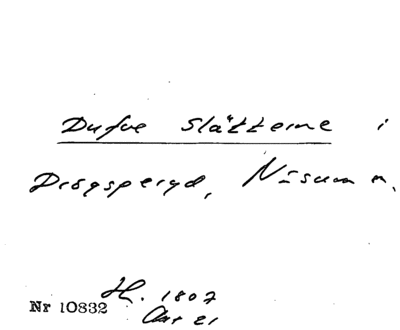 Dufve Slätterne i
Drögsperyd, Näsum n.
Nr 10832 H. 1807
Akt 21